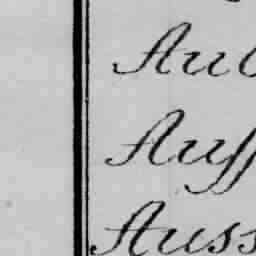 Aub
Auff
Auss